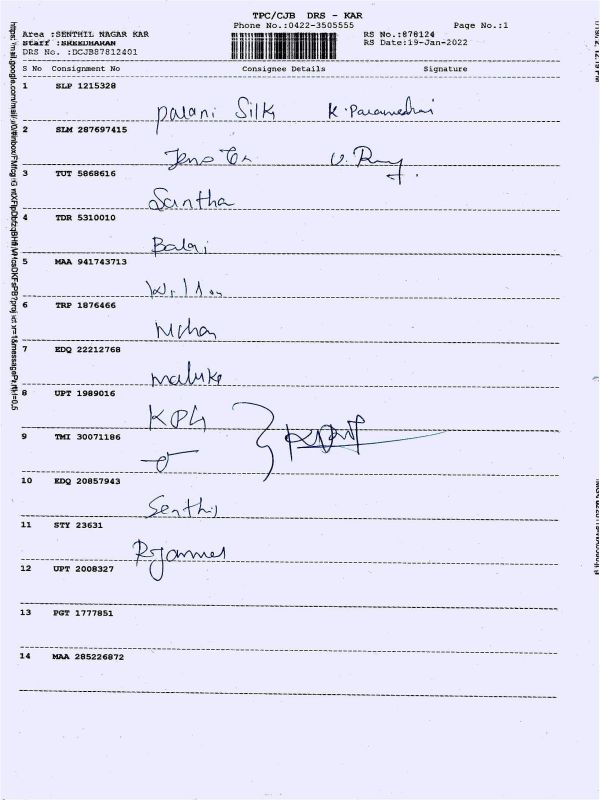 TPC/CJB DRS - KAR
Phone No.:0422-3505555 Page No.:1
Area :SENTHIL NAGAR KAR RS No.:878124
Staff :SREEDHARAN RS Date:19-Jan-2022
DRS No. :DCJB87812401
S No Consignment No Consignee Details Signature
1 SLP 1215328
Palani Silk
2 SLM 287697415
3 TUT 5868616
Santha
4 TDR 5310010
Balaji
5 MAA 941743713
6 TRP 1876466
Mohan
7 EDQ 22212768
8 UPT 1989016
KPG
9 TMI 30071186
10 EDQ 20857943
Senthil
11 STY 23631
12 UPT 2008327
13 PGT 1777851
14 MAA 285226872